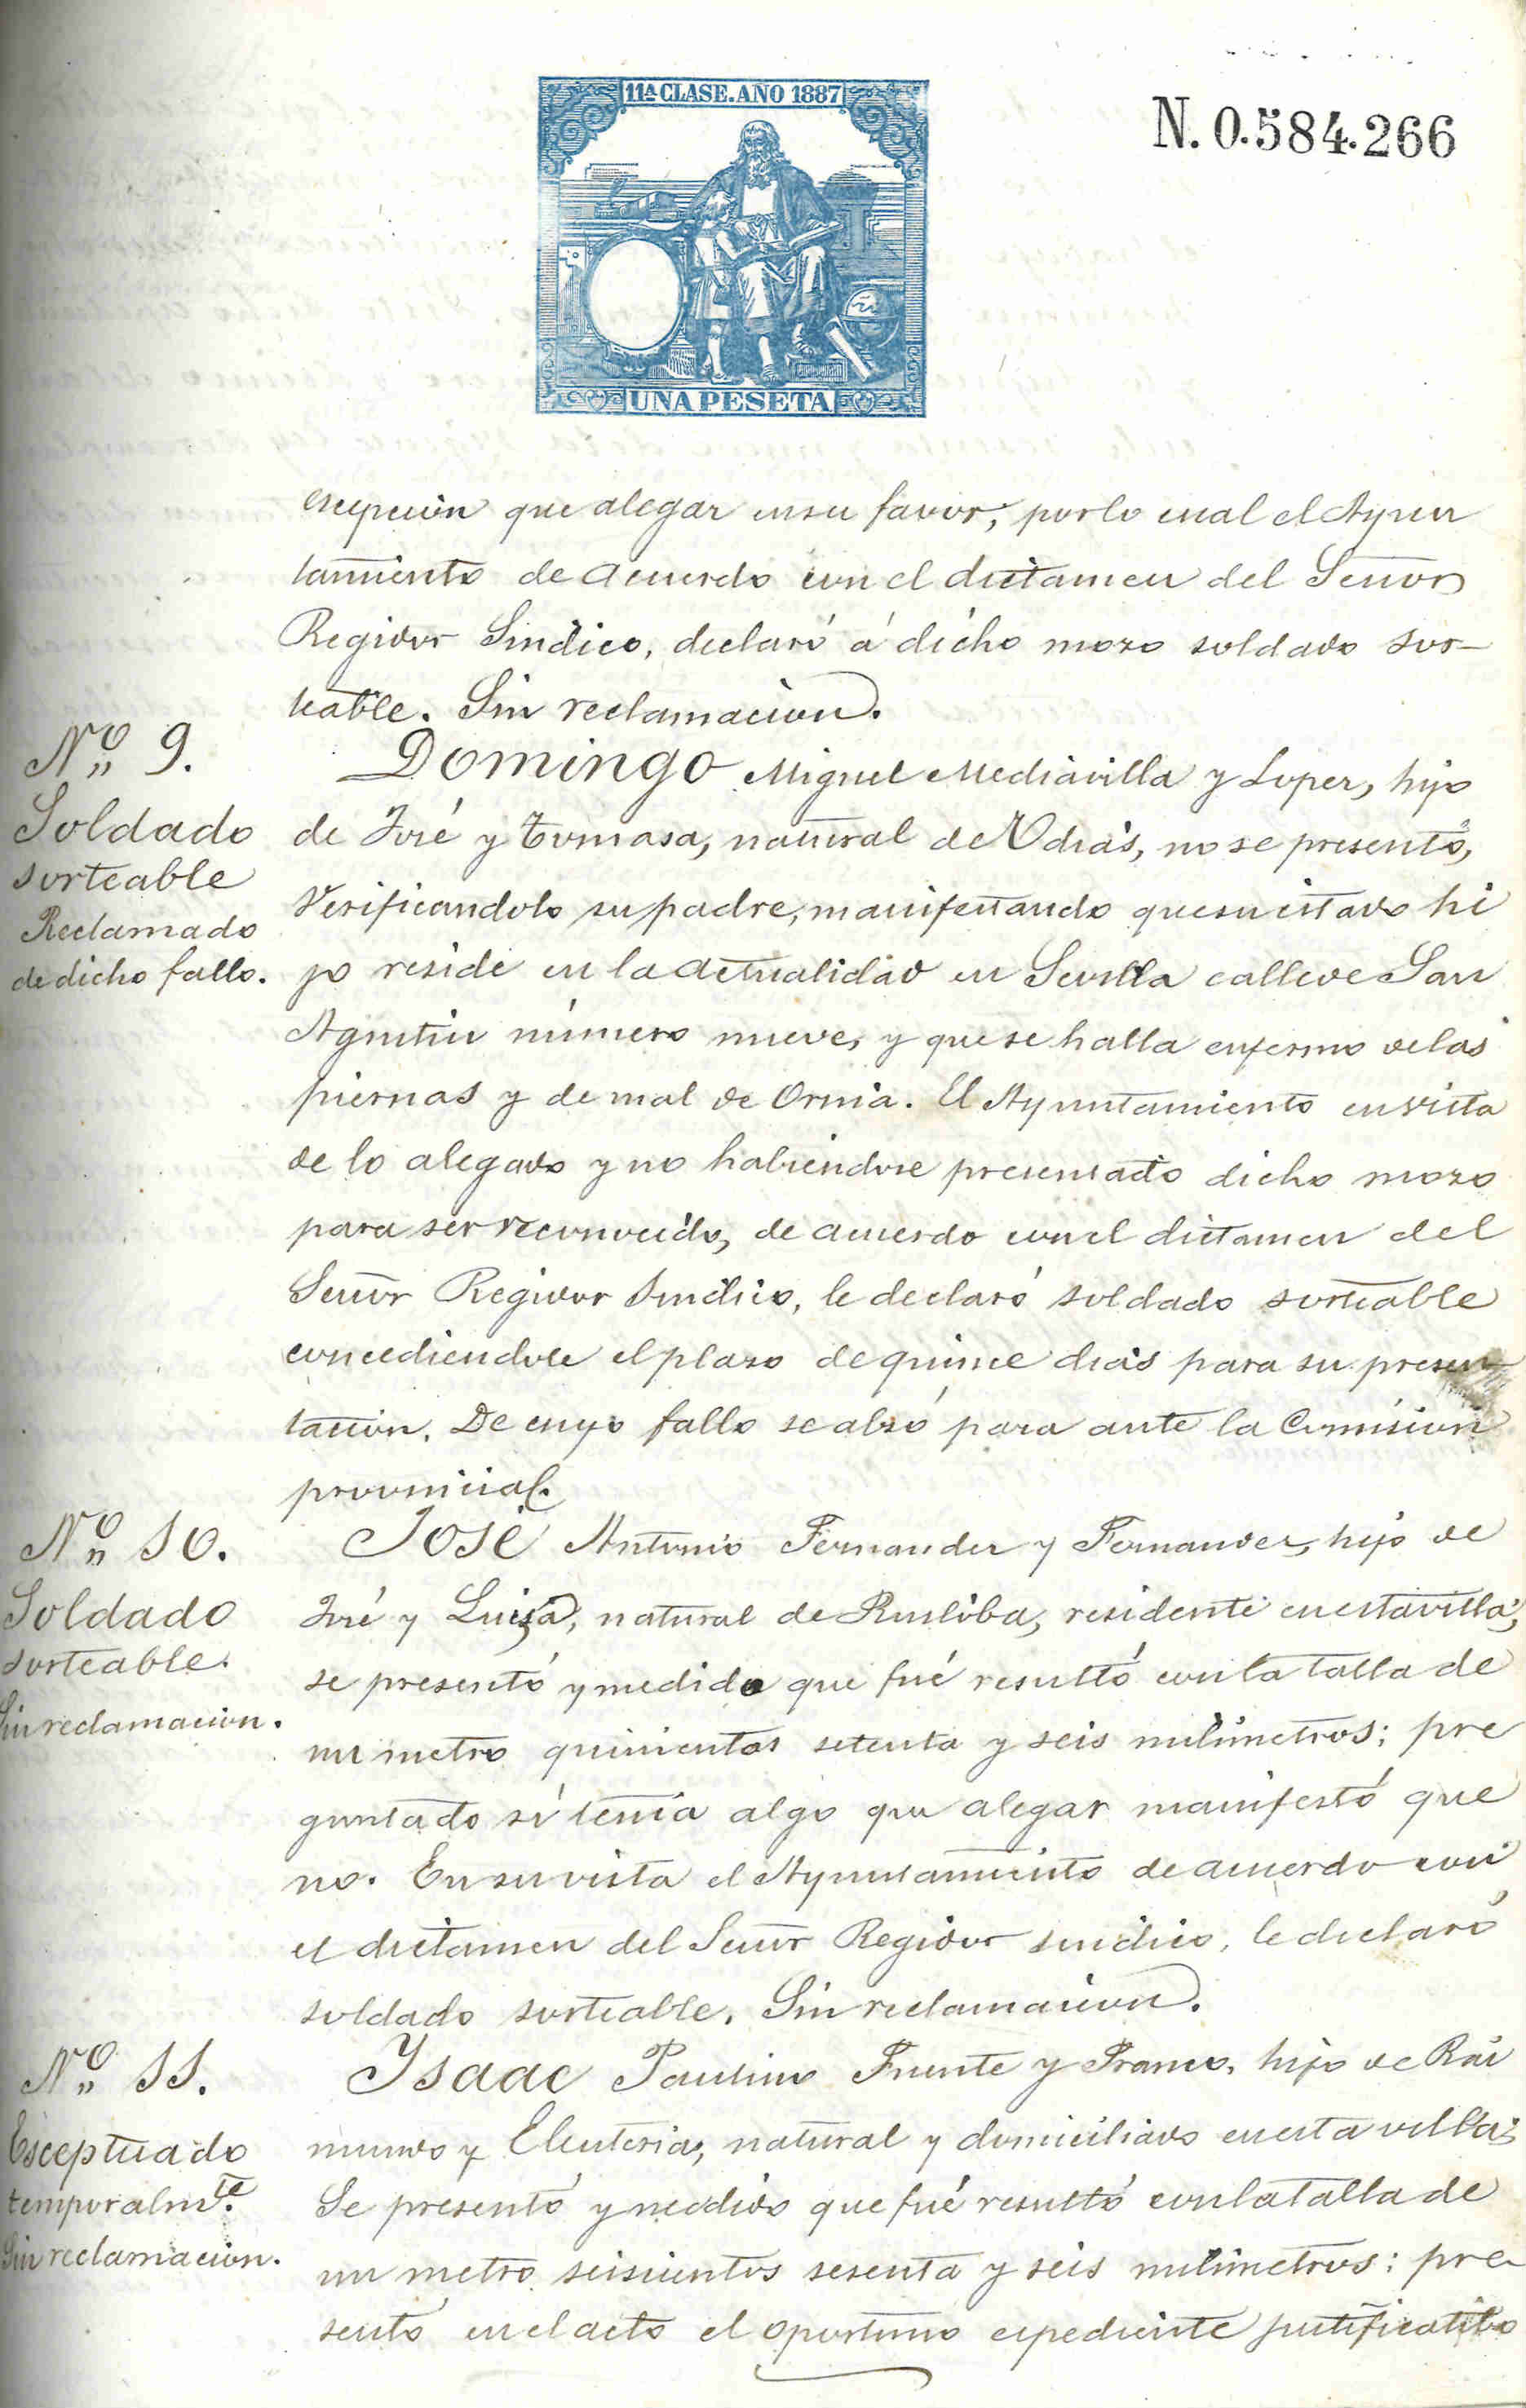 11ª CLASE. AÑO 1887
UNA PESETA
N. 0.584.266
escepcion que alegar en su favor, por lo cual el Ayun
tamiento de acuerdo con el dictamen del Señor
Regidor Sindico, declaró á dicho mozo soldado sor-
teable. Sin reclamacion.
Nº 9.
Soldado
sorteable
Reclamado
de dicho fallo.
Domingo Miguel Mediavilla y Lopez, hijo
de José y Tomasa, natural de Udias, no se presentó,
Verificandolo su padre, manifestando que su citado hi
jo reside en la actualidad en Sevilla calle de San
Agustin número nueve, y que se halla enfermo de las
piernas y de mal de Orina. El Ayuntamiento en vista
de lo alegado y no habiendose presentado dicho mozo
para ser reconocido, de acuerdo con el dictamen del
Señor Regidor Sindico, le declaró soldado sorteable
concediendole el plazo de quince dias para su presen
tacion. De cuyo fallo se alzó para ante la Comision
provincial.
Nº 10.
Soldado
sorteable.
Sin reclamacion.
José Antonio Fernandez y Fernandez, hijo de
José y Luisa, natural de Ruiloba, residente en esta villa,
se presentó y medido que fué resultó con la talla de
un metro quinientos setenta y seis milimetros; pre
guntado si tenia algo que alegar manifestó que
no. En su vista el Ayuntamiento de acuerdo con
el dictamen del Señor Regidor sindico, le declaró
soldado sorteable. Sin reclamacion.
Nº 11.
Esceptuado
temporalmte.
Sin reclamacion.
Ysaac Paulino Fuente y Franco, hijo de Rai
mundo y Eleuteria, natural y domiciliado en esta villa;
Se presentó y medido que fué resultó con la talla de
un metro seiscientos sesenta y seis milimetros; pre
sentó en el acto el oportuno espediente justificatibo